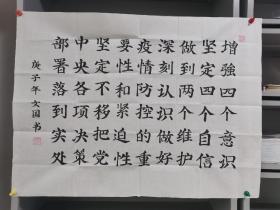 增強四个意识
坚定四个自信
做到两个维护
深刻认识做好
疫情防控的重
要性和紧迫性
坚定不移把党
中央各项决策
部署落到实处
庚子年文国书